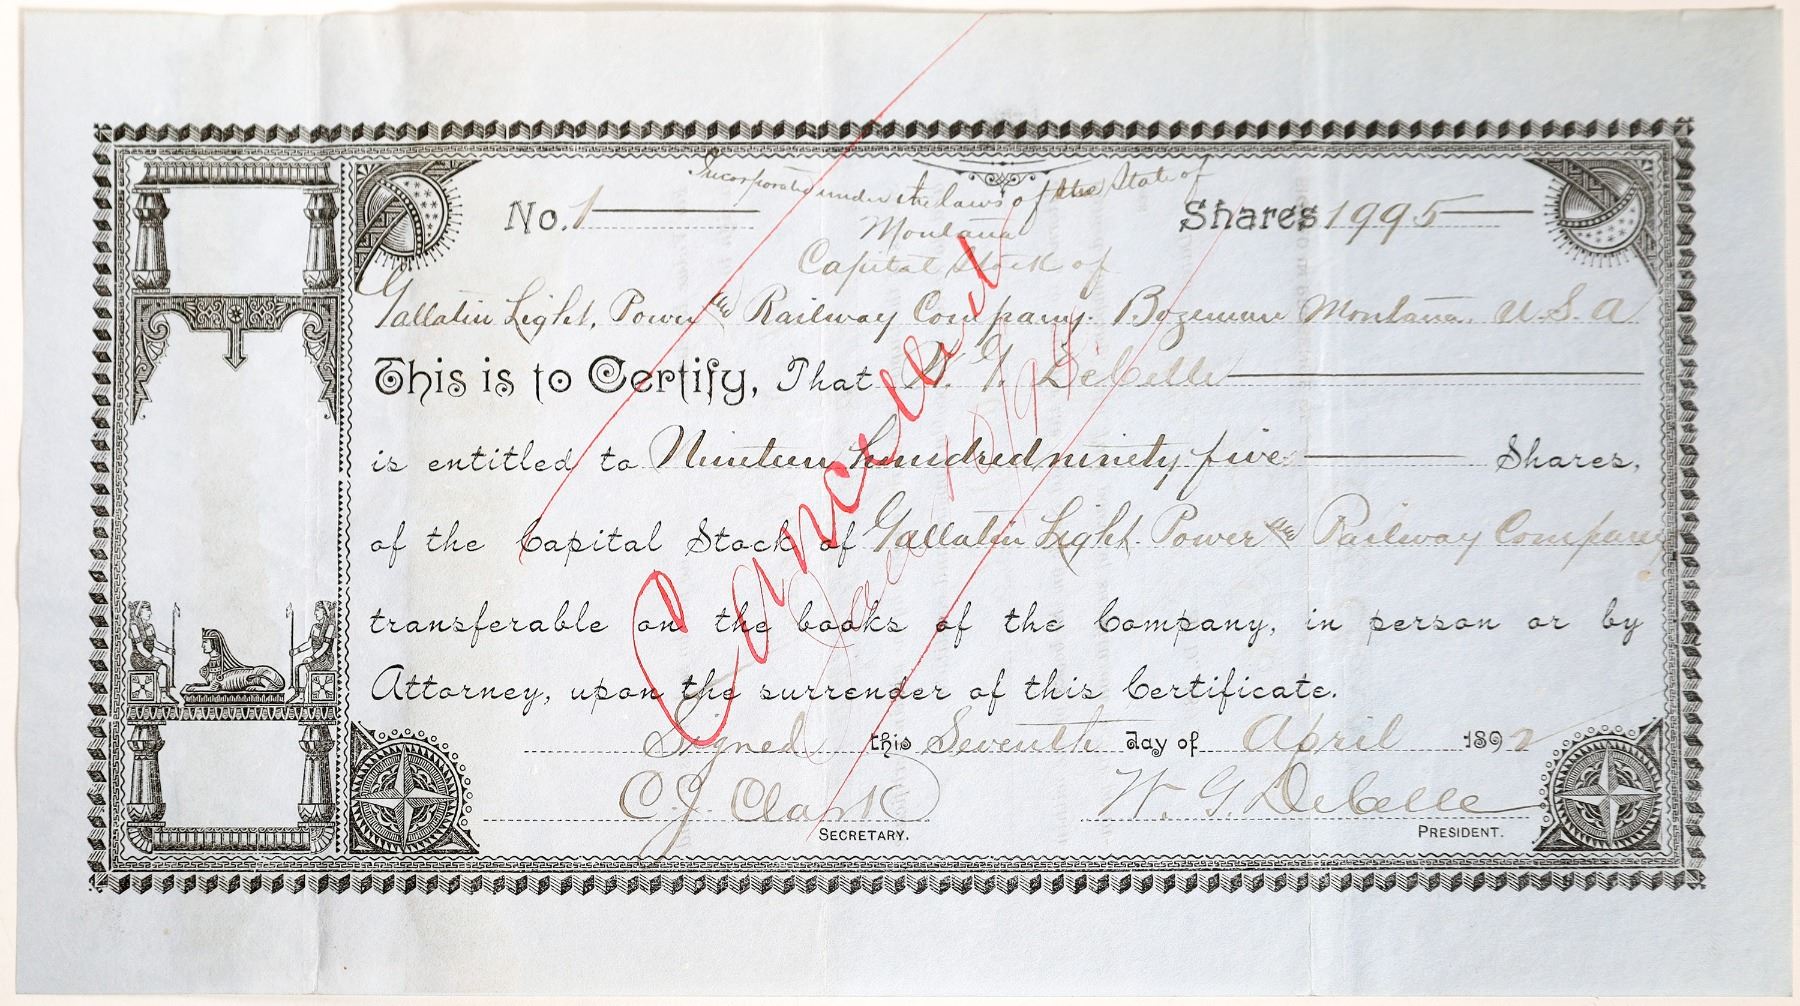 Incorporated under the laws of the State of
No. 1 Montana Shares 1995
Capital Stock of
Gallatin Light, Power & Railway Company. Bozeman Montana. U.S.A
This is to Certify, That W. G. DeCelle
is entitled to Nineteen hundred ninety five Shares,
of the Capital Stock of Gallatin Light. Power & Railway Company
transferable on the books of the Company, in person or by
Attorney, upon the surrender of this Certificate.
Signed this Seventh day of April 1892
C. J. Clark W. G. DeCelle
SECRETARY. PRESIDENT.
Cancelled